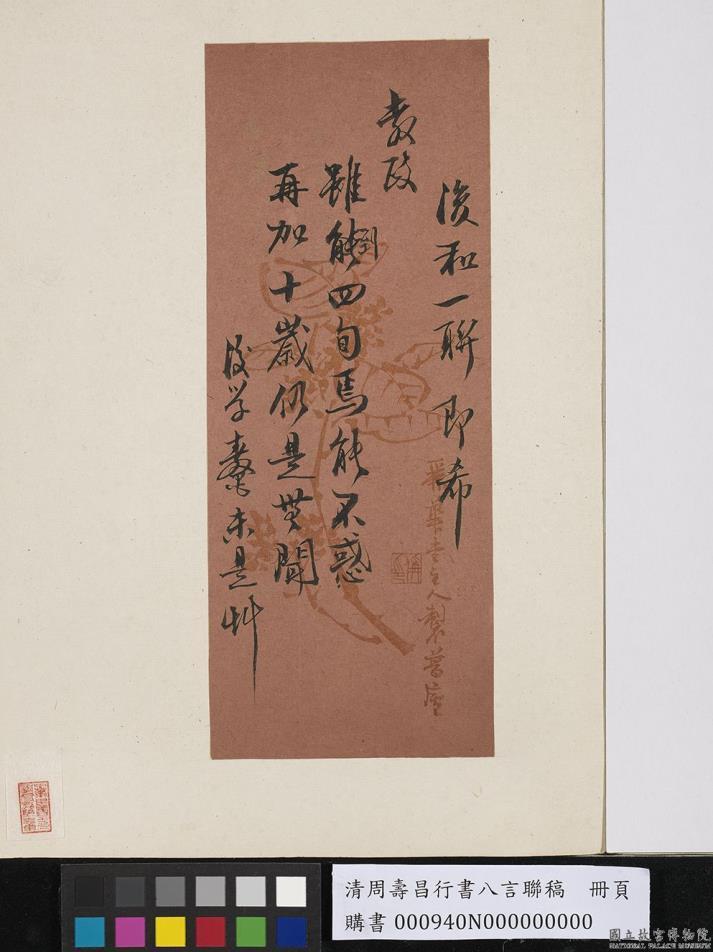 復和一聯 即希
教政
雖能到四旬焉能不惑
再加十歲仍是無聞
後学未是艸
主人製
清周壽昌行書八言聯稿　冊頁
購書 000940N000000000
國立故宮博物院
NATIONAL PALACE MUSEUM